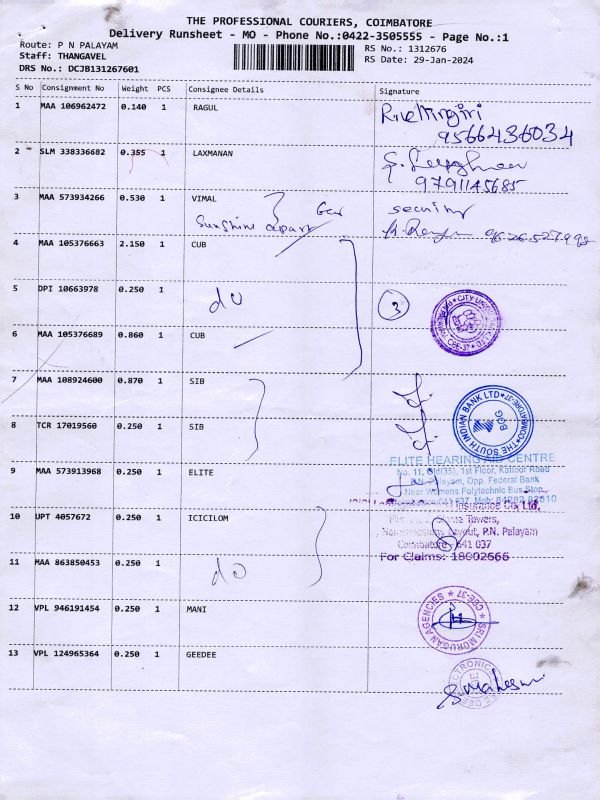 THE PROFESSIONAL COURIERS, COIMBATORE
Delivery Runsheet - MO - Phone No.:0422-3505555 - Page No.:1
Route: P N PALAYAM
RS No.: 1312676
Staff: THANGAVEL
RS Date: 29-Jan-2024
DRS No.: DCJB131267601
S No Consignment No Weight PCS Consignee Details Signature
1 MAA 106962472 0.140 1 RAGUL
9566436034
2 SLM 338336682 0.355 1 LAXMANAN
9791145685
3 MAA 573934266 0.530 1 VIMAL security
Sunshine apart
4 MAA 105376663 2.150 1 CUB
5 DPI 10663978 0.250 1
do 3
6 MAA 105376689 0.860 1 CUB
7 MAA 108924600 0.870 1 SIB
THE SOUTH INDIAN BANK LTD COIMBATORE-37
8 TCR 17019560 0.250 1 SIB
ELITE HEARING AID CENTRE
9 MAA 573913968 0.250 1 ELITE
No. 11, Old(35), 1st Floor, Kattoor Road
P.N. Palayam, Opp. Federal Bank
Near Womens Polytechnic Bus Stop
10 UPT 4057672 0.250 1 ICICILOM
Insurance Co. Ltd,
Towers,
Layout, P.N. Palayam
Coimbatore - 641 037
For Claims: 18002666
11 MAA 863850453 0.250 1
do
12 VPL 946191454 0.250 1 MANI
SRI MORUGAN AGENCIES CBE-37
13 VPL 124965364 0.250 1 GEEDEE